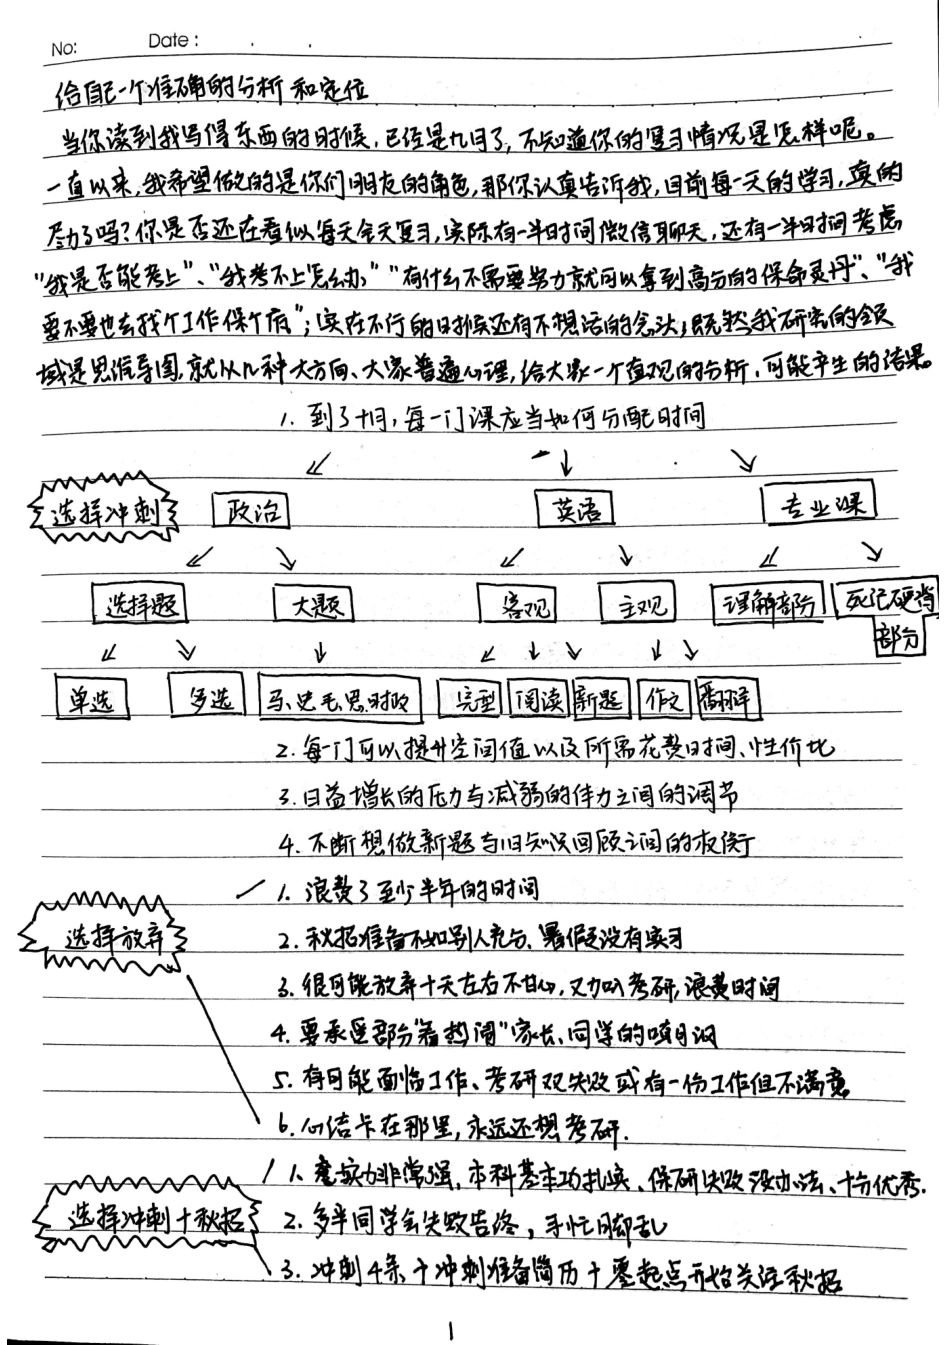 No:
Date:
给自己一个准确的分析和定位
当你读到我写得东西的时候,已经是九月了,不知道你的复习情况是怎样呢。
一直以来,我希望做的是你们朋友的角色,那你认真告诉我,目前每一天的学习,真的
尽力了吗?你是否还在看似每天全天复习,实际有一半时间微信聊天,还有一半时间考虑
"我是否能考上"、"我考不上怎么办""有什么不需要努力就可以拿到高分的保命灵丹"、"我
要不要也去找个工作保个底";实在不行的时候还有不想活的念头;既然我研究的领
域是思维导图,就从几种大方向、大家普遍心理,给大家一个直观的分析,可能产生的结果。
1. 到了十月,每一门课应当如何分配时间
选择冲刺 政治 英语 专业课
选择题 大题 客观 主观 理解部分 死记硬背
部分
单选 多选 马、史毛思时政 完型 阅读 新题 作文 翻译
2. 每门可以提升空间值以及所需花费时间、性价比
3. 日益增长的压力与减弱的体力之间的调节
4. 不断想做新题与旧知识回顾之间的权衡
1. 浪费了至少半年的时间
选择放弃
2. 秋招准备不如别人充分、暑假没有实习
3. 很可能放弃十天左右不甘心,又加入考研,浪费时间
4. 要承受部分"看热闹"家长、同学的嘲讽
5. 有可能面临工作、考研双失败或有一份工作但不满意
6. 心结卡在那里,永远还想考研.
1. 实力非常强,本科基本功扎实、保研失败没办法、十分优秀.
选择冲刺+秋招
2. 多半同学会失败告终,手忙脚乱
3. 冲刺4杀+冲刺准备简历+零起点开始关注秋招
1